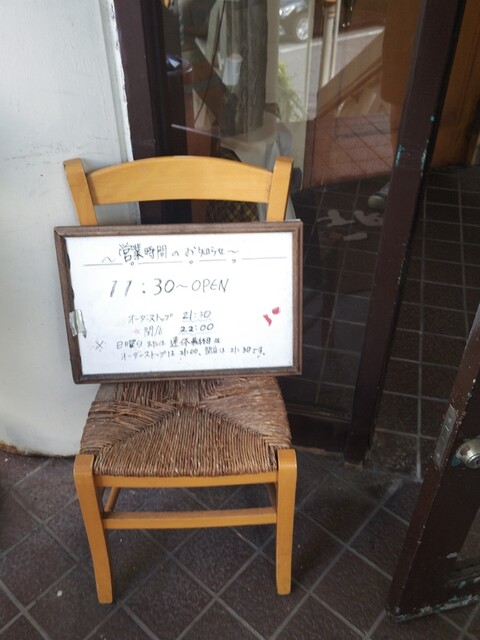 〜営業時間のお知らせ〜
11:30〜OPEN
オーダーストップ 21:30
※閉店 22:00
※ 日曜日または連休最終日は
オーダーストップは21:00、閉店は21:30です。